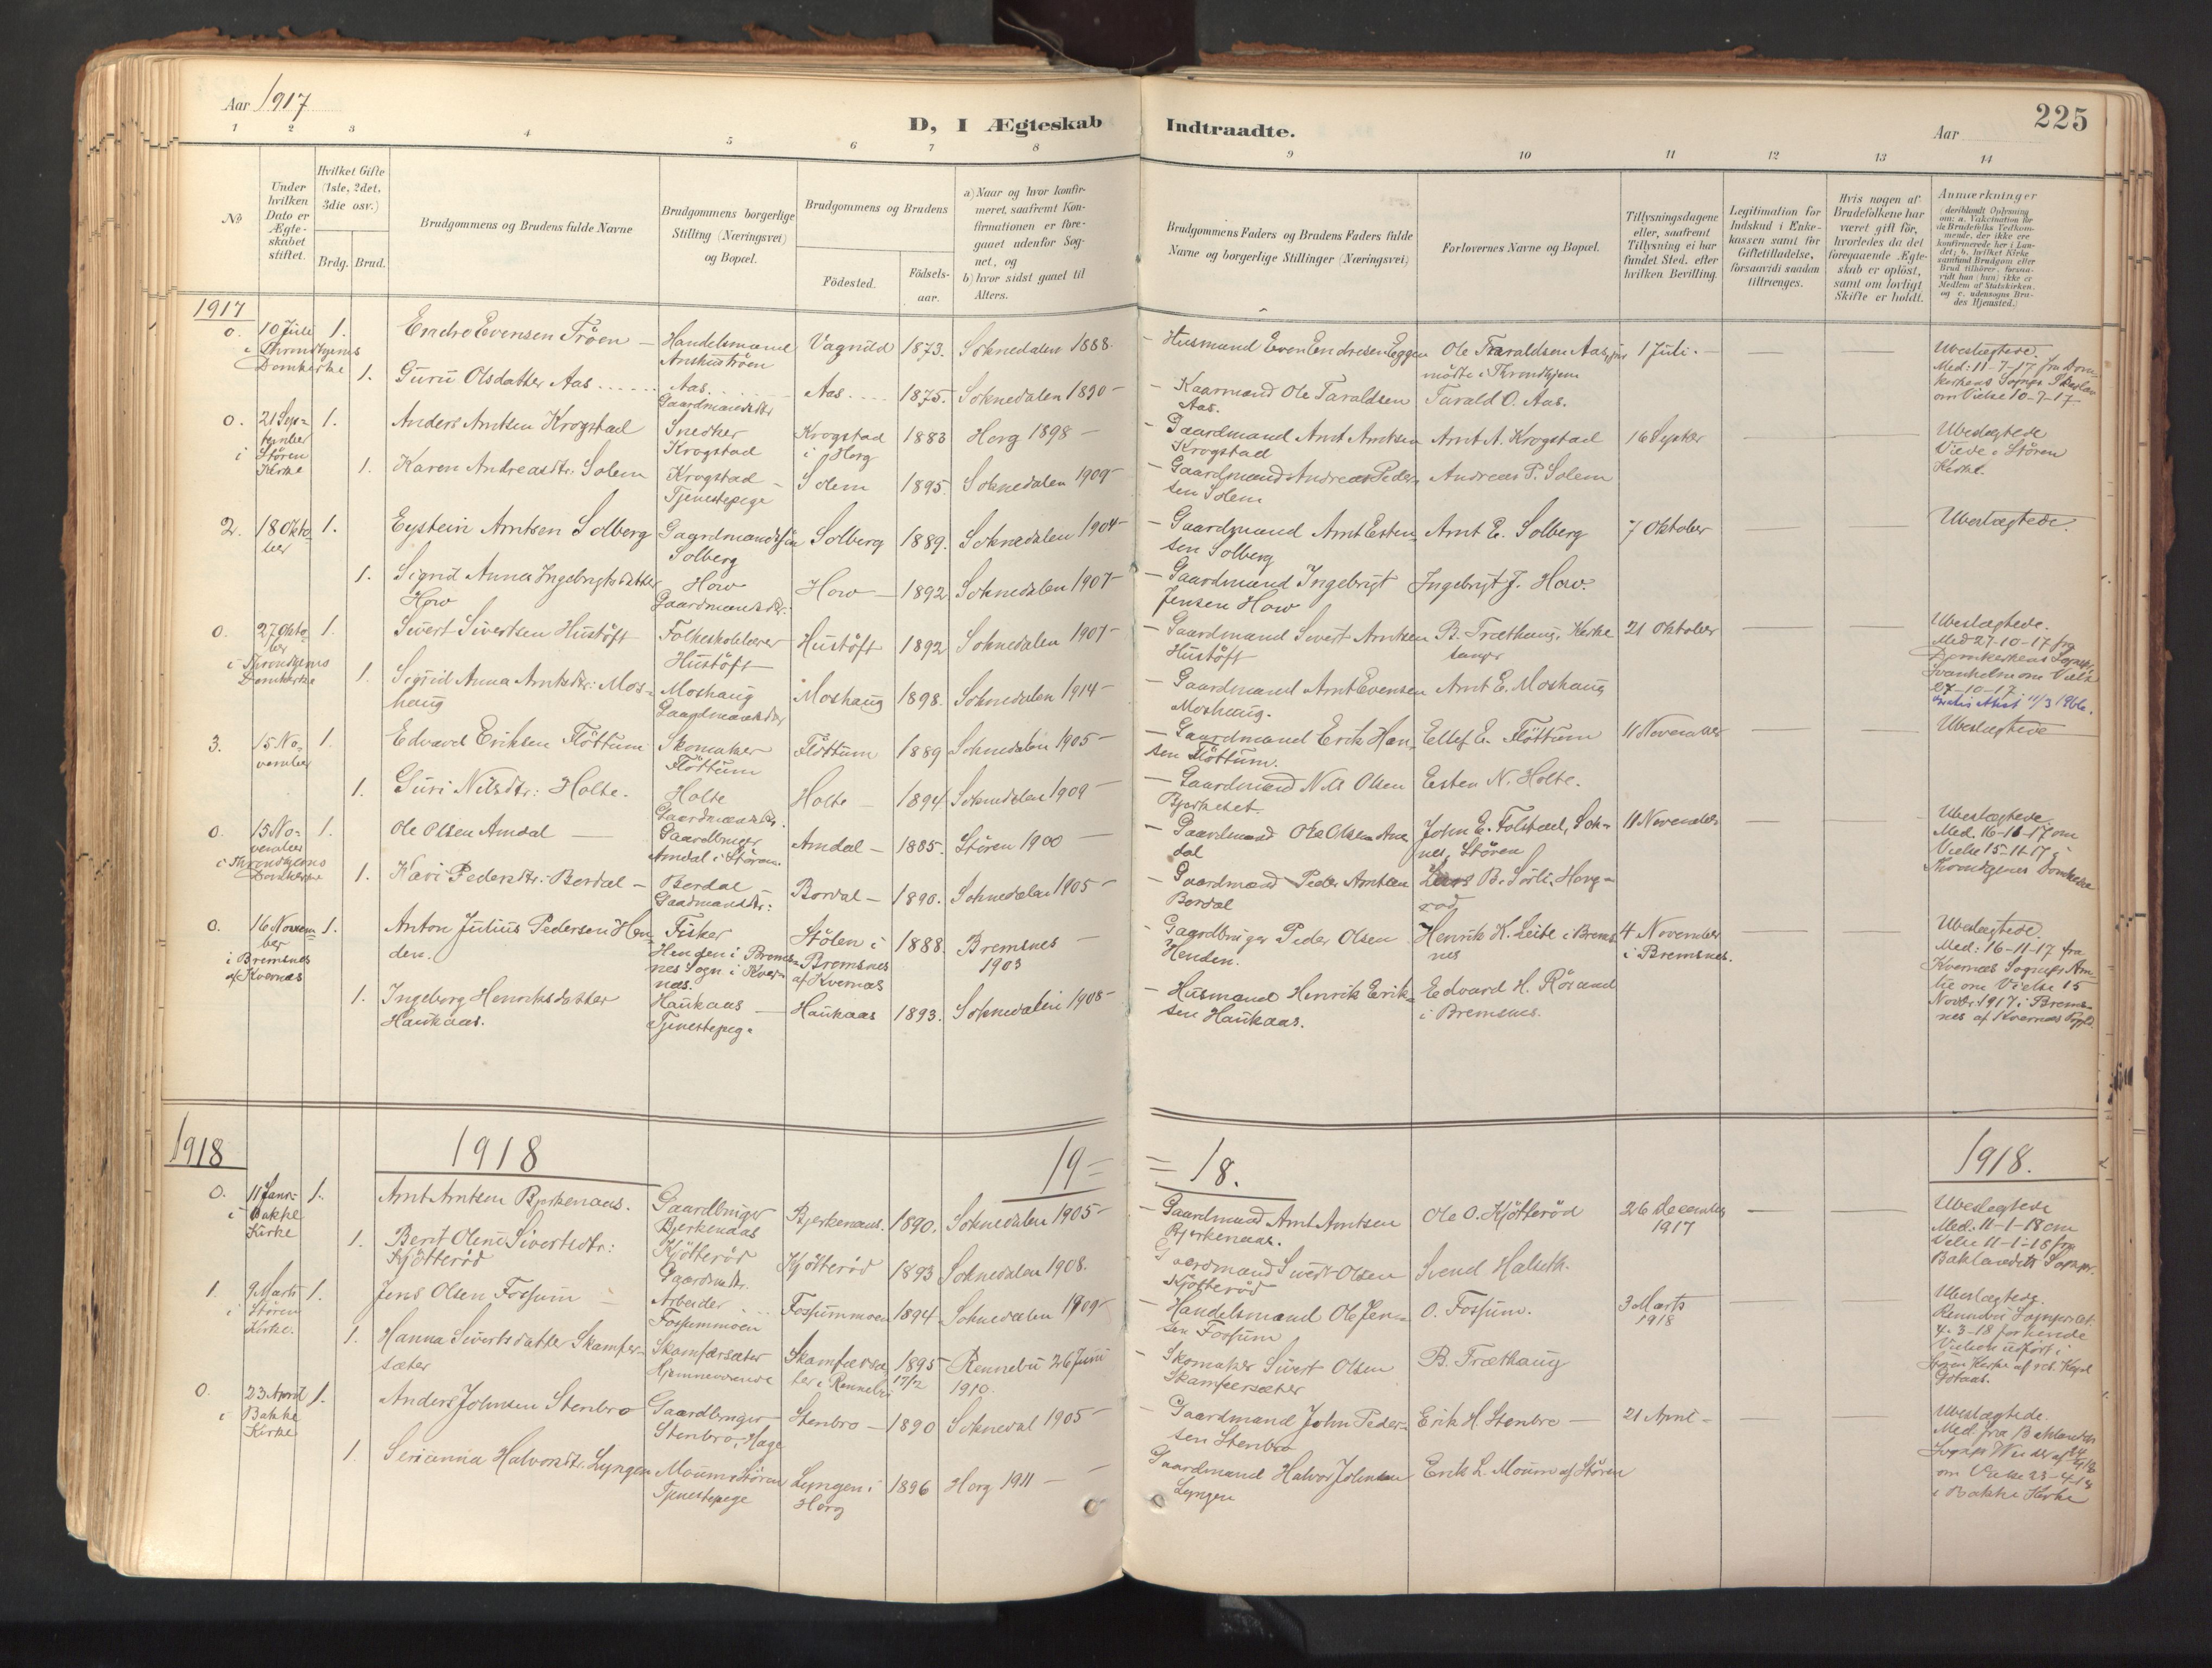 Aar 1917
D, I Ægteskab Indtraadte.
Aar
225
1 2 3 4 5 6 7 8 9 10 11 12 13 14
No
Under hvilken Dato er Ægteskabet stiftet.
Hvilket Gifte (1ste, 2det, 3die osv.)
Brdg. Brud.
Brudgommens og Brudens fulde Navne
Brudgommens borgerlige Stilling (Næringsvei) og Bopæl.
Brudgommens og Brudens
Födested.
Födsels-aar.
a) Naar og hvor konfirmeret, saafremt Konfirmationen er foregaaet udenfor Sognet, og
b) hvor sidst gaaet til Alters.
Brudgommens Faders og Brudens Faders fulde Navne og borgerlige Stillinger (Næringsvei)
Forlovernes Navne og Bopæl.
Tillysningsdagene eller, saafremt Tillysning ei har fundet Sted, efter hvilken Bevilling.
Legitimation for Indskud i Enkekassen samt for Giftetilladelse, forsaavidt saadan tiltrænges.
Hvis nogen af Brudefolkene har været gift för, hvorledes da det foregaaende Ægteskab er oplöst, samt om lovligt Skifte er holdt.
Anmærkninger
1917
0. 10 Juli i Throndhjems Domkirke 1. Endre Evensen Tröen — Handelsmand Vagnild 1873. Soknedalen 1888. Husmand Even Endresen Eggen Ole Taraldsen Aas, jnr mödte i Throndhjem 1 Juli. — Ubeslægtede. Med: 11-7-17 fra Domkirkens Sognepr.
om Vielse 10-7-17
1. Guru Olsdatter Aas Aas. Gaardmandsdtr Aas 1875. Soknedalen 1890 — Kaarmand Ole Taraldsen Aas. Tarald O. Aas.
0. 21 September i Stören Kirke 1. Anders Arntsen Krogstad Snedker Krogstad Krogstad i Horg 1883 Horg 1898 — Gaardmand Arnt Arntsen Krogstad Arnt A. Krogstad 16 Septbr — Ubeslægtede Viede i Stören Kirke.
1. Karen Andreasdtr. Solem Krogstad Tjenestepige Solem 1895. Soknedalen 1909 — Gaardmand Andreas Pedersen Solem Andreas P. Solem
2. 18 Oktober 1. Eystein Arntsen Solberg Gaardmandssön Solberg Solberg 1889. Soknedalen 1904 — Gaardmand Arnt Estensen Solberg Arnt E. Solberg 7 Oktober — Ubeslægtede.
1. Sigrid Anna Ingebrigtsdatter How How Gaardmandsdtr. How — 1892 Soknedalen 1907 — Gaardmand Ingebrigt Jensen How Ingebrigt J. How.
0. 27 Oktober i Throndhjems Domkirke 1. Sivert Sivertsen Hustöft Folkeskolelærer Hustöft Hustöft 1892 Soknedalen 1907 — Gaardmand Sivert Arntsen Hustöft B. Træthaug, Kirkesanger 21 Oktober — Ubeslægtede. Med 27-10-17 fra Domkirkens Sognepr. om Vielse 27-10-17
1. Sigrid Anna Arntsdtr: Moshaug Moshaug Gaardmandsdtr Moshaug 1898. Soknedalen 1914 — Gaardmand Arnt Evensen Moshaug. Arnt E. Moshaug
3. 15 November 1. Edvard Eriksen Flöttum Skomaker Flöttum Flöttum 1889 Soknedalen 1905 — Gaardmand Erik Hansen Flöttum. Ellef E. Flöttum 11 November — Ubeslægtede
1. Guri Nilsdtr: Holte. Holte Gaardmandsdtr. Holte — 1894 Soknedalen 1909 — Gaardmand Nils Olsen Bjerkeset Esten N. Holte.
0. 15 November i Throndhjems Domkirke 1. Ole Olsen Amdal — Gaardbruger Amdal i Stören. Amdal — 1885. Stören 1900 — Gaardmand Ole Olsen Amdal John E. Folstad, Soknes, Stören 11 November — Ubeslægtede. Med. 16-11-17 om Vielse 15-11-17 i Throndhjems Domkirke
1. Kari Pedersdtr: Bordal — Bordal Gaardmandsdtr: Bordal — 1890. Soknedalen 1905 — Gaardmand Peder Arntsen Bordal Lars B. Sörli, Horg
0. 16 November i Bremsnes af Kvernæs 1. Anton Julius Pedersen Henden. Fisker Henden i Bremsnes Sogn i Kvernæs. Stölen i Bremsnes af Kvernæs 1888. Bremsnes 1903 — Gaardbruger Peder Olsen Henden. Henrik K. Leite i Bremsnes 4 November i Bremsnes. — Ubeslægtede. Med: 16-11-17 fra Kvernæs Sognepr. om Vielse 15 Novbr. 1917 i Bremsnes af Kvernæs
1. Ingeborg Henriksdatter Haukaas. Haukaas Tjenestepige Haukaas 1893. Soknedalen 1908 — Husmand Henrik Eriksen Haukaas. Edvard H. Rösand i Bremsnes.
1918 1918 19= =18. 1918.
0. 11 Januar i Bakke Kirke 1. Arnt Arntsen Bjerkenaas. Gaardbruger Bjerkenaas Bjerkenaas. 1890. Soknedalen 1905 — Gaardmand Arnt Arntsen Bjerkenaas. Ole O. Kjötteröd 26 December 1917 — Ubeslægtede Med. 11-1-18 om Vielse 11-1-18 fra Baklandets Sognepr.
1. Berit Oline Sivertsdtr: Kjötteröd Kjötteröd Gaardmdtr. Kjötteröd 1893 Soknedalen 1908. Gaardmand Sivert Olsen Kjötteröd Svend Haluth.
1. 9 Marts i Stören Kirke. 1. Jens Olsen Fossum — Arbeider Fossummoen Fossummoen 1894 Soknedalen 1909 — Handelsmand Ole Jensen Fossum O. Fossum. 3 Marts 1918 — Ubeslægtede. Rennebu Sognepræst 4-3-18
1. Hanna Sivertsdatter Skamfersæter Skamfærsæter Hjemmeværende Skamfærsæter i Rennebu 1895 17/12 Rennebu 26 Juni 1910. — Skomaker Sivert Olsen Skamfærsæter B. Træthaug
0. 23 April i Bakke Kirke 1. Anders Johnsen Stenbro Gaardbruger Stenbro, Hage Stenbro — 1890 Soknedal 1905 — Gaardmand John Pedersen Stenbro Erik H. Stenbro — 21 April — Ubeslægtede. Med. fra Baklandets Sognepr. om Vielse 23-4-18 i Bakke Kirke
1. Serianna Halvorsdtr. Lyngen Moum i Stören Tjenestepige Lyngen i Horg 1896 Horg 1911 — Gaardmand Halvor Johnsen Lyngen Erik L. Moum af Stören